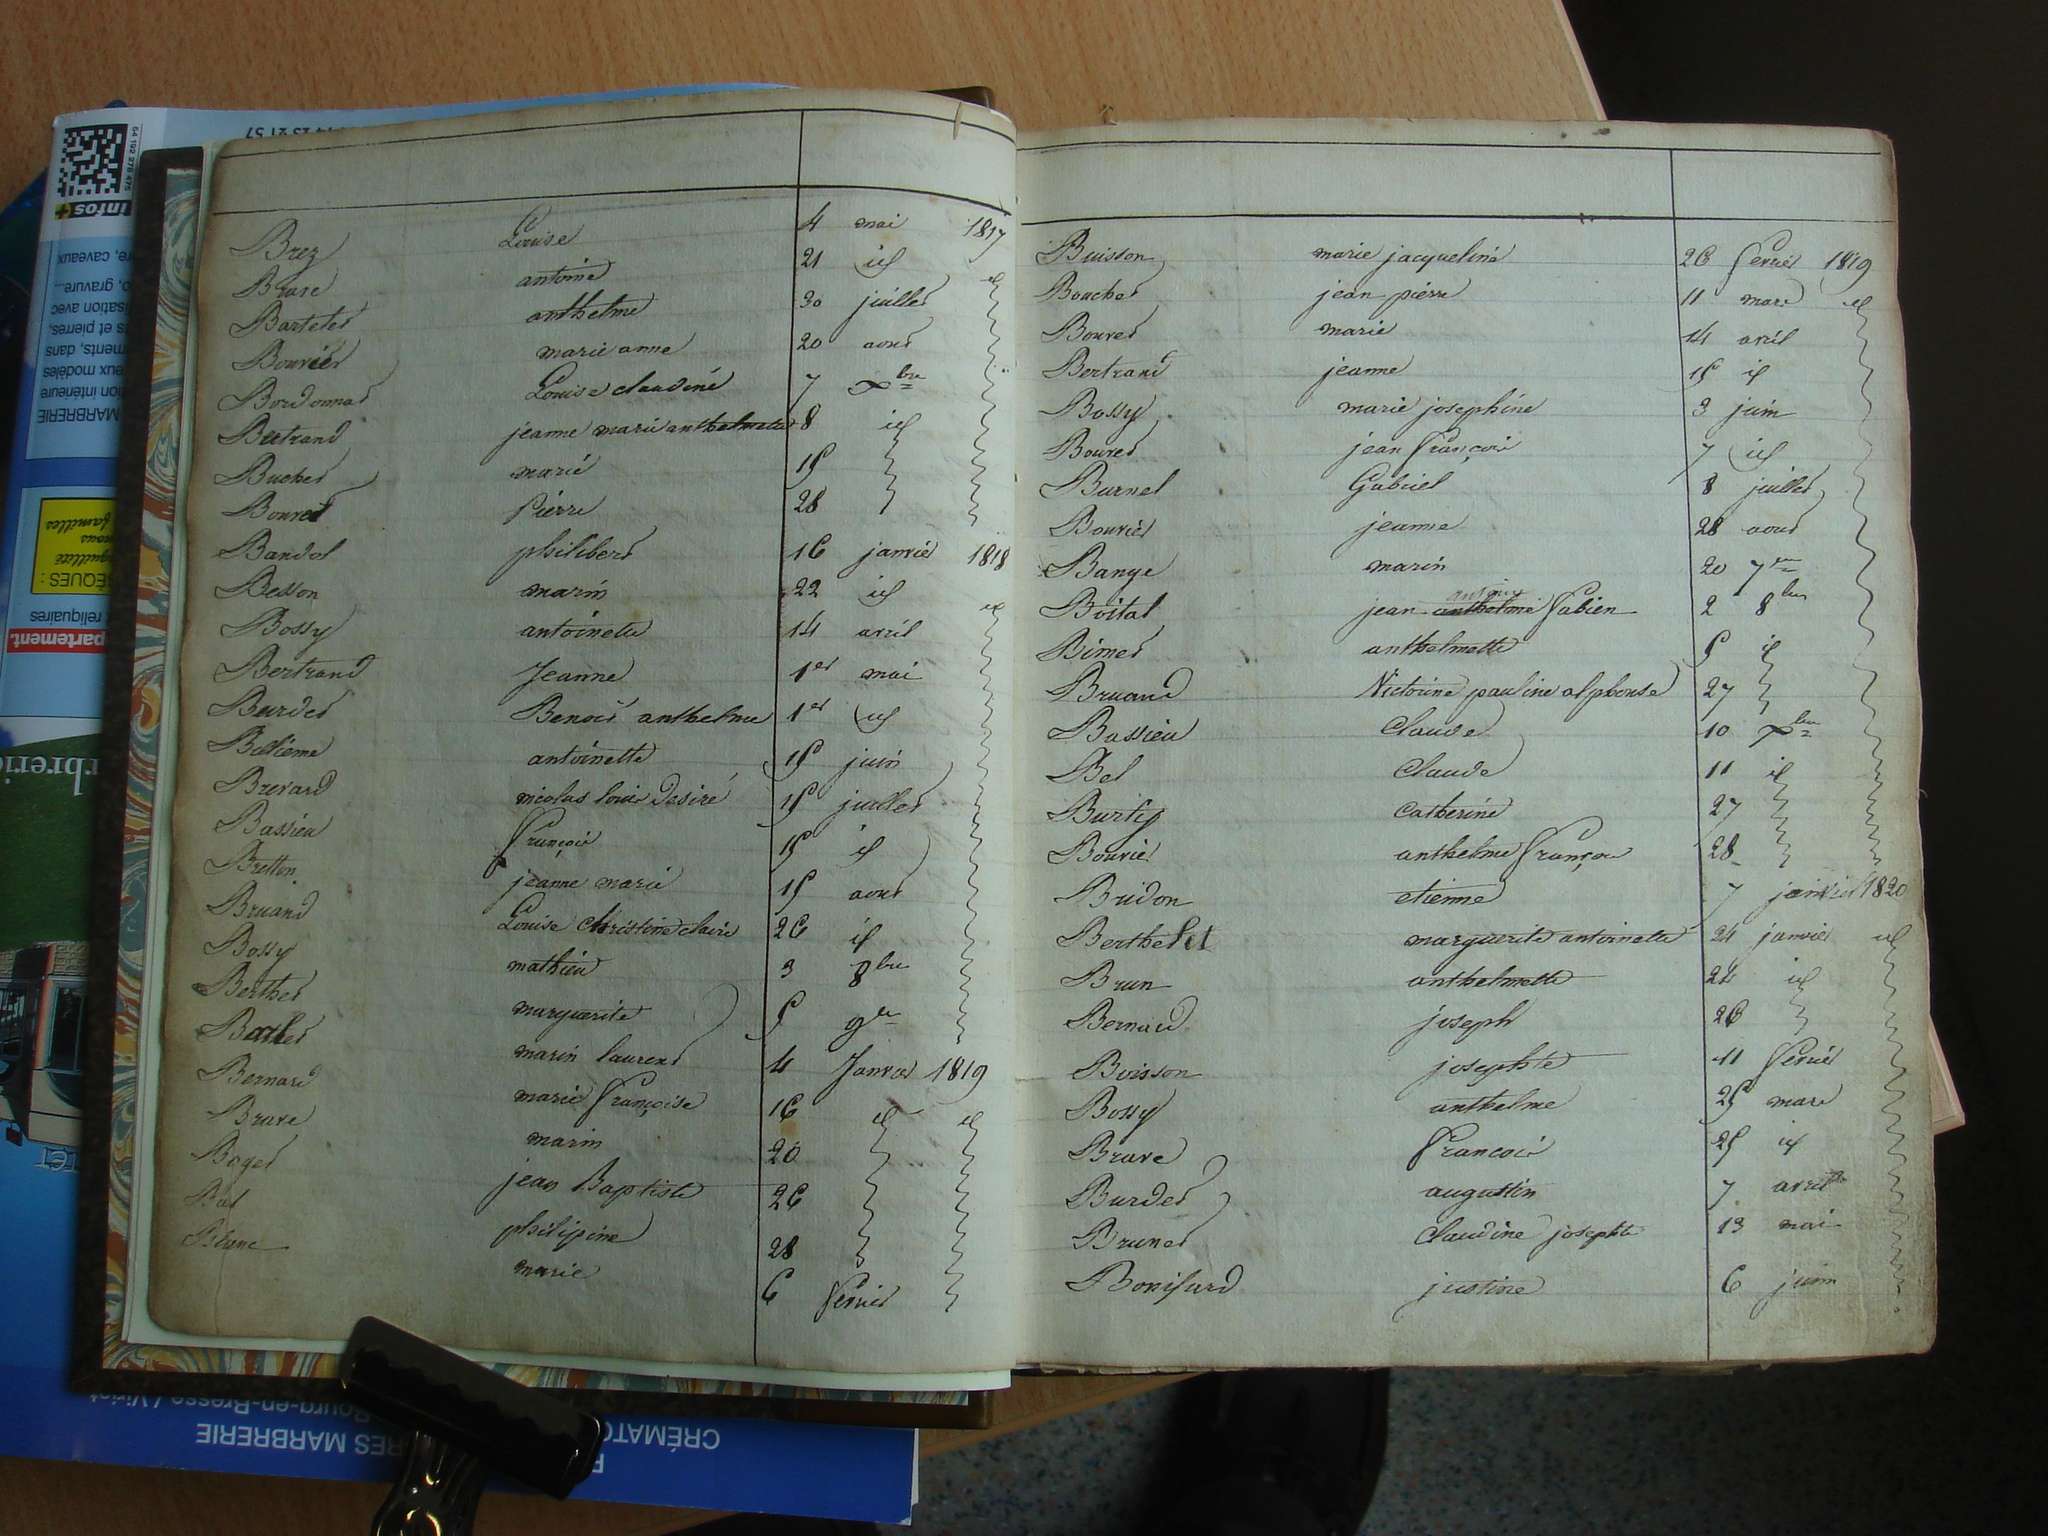 Brez Louise 4 mai 1817
Brare antoine 21 id id
Bartelet anthelme 30 juillet
Bouvier marie anne 20 aout
Bourdonnat Louise claudine 7 Xbre
Bertrand jeanne marie anthelmette 8 id
Buchet marie 15
Bouvet Pierre 28
Bandol philibert 16 janvier 1818
Besson marin 22 id id
Bossy antoinette 14 avril
Bertrand Jeanne 1er mai
Burdet Benoit anthelme 1er id
Billième antoinette 15 juin
Brevard nicolas louis Desiré 15 juillet
Bassieu François 15 id
Bretton jeanne marie 15 aout
Bruand Louise Christine claire 26 id
Bossy mathieu 3 8bre
Berthet marguerite 5 9re
Barbet marin laurent 4 Janvier 1819
Bernard marie Françoise 16 id id
Brave marin 20
Boget jean Baptiste 26
Bal philipine 28
Blanc marie 6 Fevrier
Buisson marie jacqueline 26 fevrier 1819
Bouchet jean pierre 11 mars id
Bouvet marie 14 avril
Bertrand jeanne 15 id
Bossy marie josephine 3 juin
Bouvet jean François 7 id
Burnel Gabriel 8 juillet
Bouvier jeanne 28 aout
Bange marin 20 7re
antoine
Boital jean anthelme Fabien 2 8bre
Bimet anthelmette 5 id
Bruand Victorine pauline alphonse 27
Bassieu Claude 10 Xbre
Bel Claude 11 id
Burtif Catherine 27
Bouvier anthelme François 28
Bridon etienne 7 janvier 1820
Berthelet marguerite antoinette 24 janvier id
Brun anthelmette 24 id
Bernard joseph 26
Boisson josephte 11 Fevrier
Bossy anthelme 25 mars
Brave Francois 25 id
Burdet augustin 7 avril
Brunet Claudine josephte 13 mai
Bonifard justine 6 juin
64 192 278 475
infos+
re, caveaux
o, gravure...
isation avec
s et pierres,
ments, dans
eux modèles
tion intérieure
MARBRERIE
SÈQUES :
quillité
nous
familles
reliquaires
partement.
rbrerie
Bourg-en-Bresse / Viriat
RES MARBRERIE
CRÉMATO